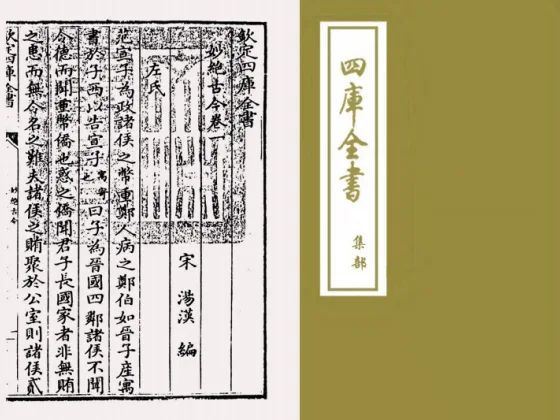 欽定四庫全書
妙絕古今卷一
宋 湯漢 編
左氏
范宣子為政諸侯之幣重鄭人病之鄭伯如晉子產寓
書於子西以告宣子寓寄也曰子為晉國四鄰諸侯不聞
令德而聞重幣僑也惑之僑聞君子長國家者非無賄
之患而無令名之難夫諸侯之賄聚於公室則諸侯貳
欽定四庫全書
妙絕古今
四庫全書
集部